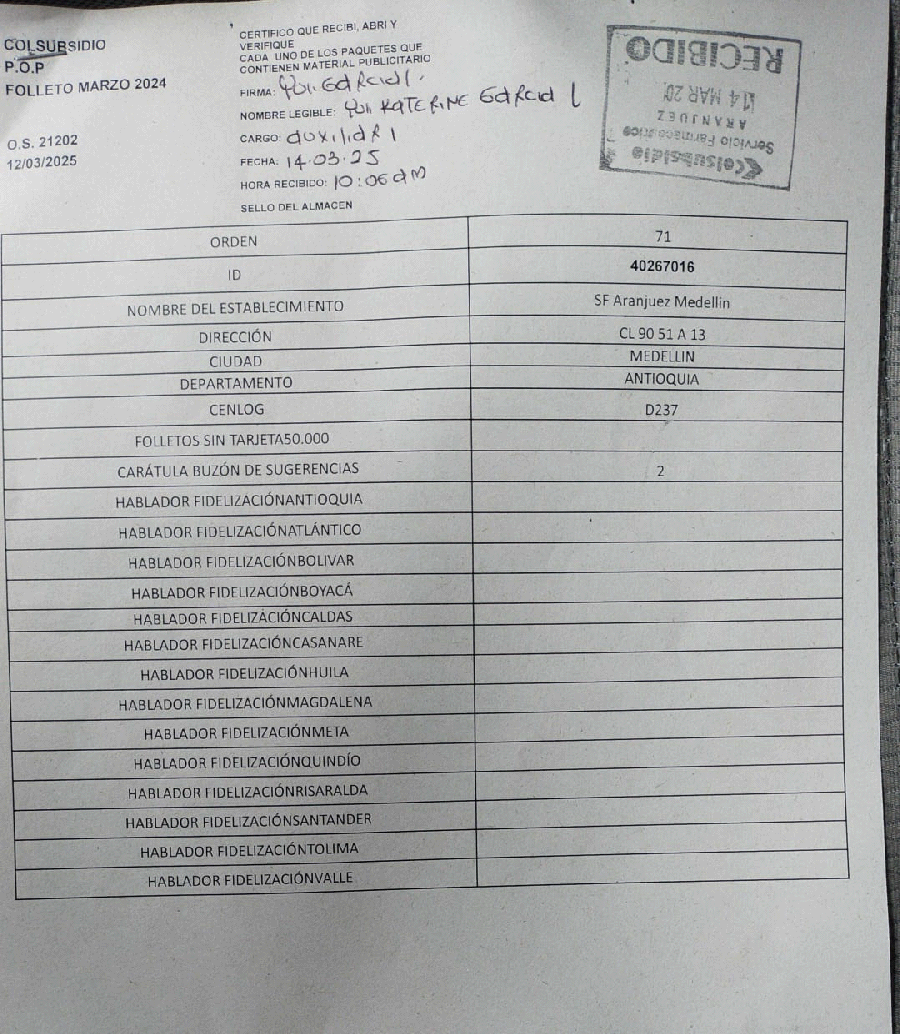 COLSUBSIDIO
P.O.P
FOLLETO MARZO 2024
O.S. 21202
12/03/2025
CERTIFICO QUE RECIBI, ABRI Y
VERIFIQUE
CADA UNO DE LOS PAQUETES QUE
CONTIENEN MATERIAL PUBLICITARIO
FIRMA: Yuli Garcia l.
NOMBRE LEGIBLE: Yuli KATERINE Garcia L
CARGO: auxiliar 1
FECHA: 14.03.25
HORA RECIBIDO: 10:06 am
SELLO DEL ALMACEN
Colsubsidio
Servicio Farmacéutico
ARANJUEZ
14 MAR 20
RECIBIDO
ORDEN 71
ID 40267016
NOMBRE DEL ESTABLECIMIENTO SF Aranjuez Medellin
DIRECCIÓN CL 90 51 A 13
CIUDAD MEDELLIN
DEPARTAMENTO ANTIOQUIA
CENLOG D237
FOLLETOS SIN TARJETA50.000
CARÁTULA BUZÓN DE SUGERENCIAS 2
HABLADOR FIDELIZACIÓNANTIOQUIA
HABLADOR FIDELIZACIÓNATLÁNTICO
HABLADOR FIDELIZACIÓNBOLIVAR
HABLADOR FIDELIZACIÓNBOYACÁ
HABLADOR FIDELIZACIÓNCALDAS
HABLADOR FIDELIZACIÓNCASANARE
HABLADOR FIDELIZACIÓNHUILA
HABLADOR FIDELIZACIÓNMAGDALENA
HABLADOR FIDELIZACIÓNMETA
HABLADOR FIDELIZACIÓNQUINDÍO
HABLADOR FIDELIZACIÓNRISARALDA
HABLADOR FIDELIZACIÓNSANTANDER
HABLADOR FIDELIZACIÓNTOLIMA
HABLADOR FIDELIZACIÓNVALLE